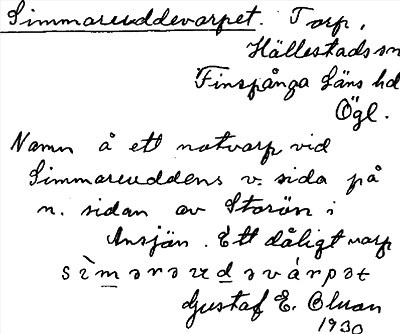 Simmareuddevarpet. Torp,
Hällestads sn
Finspånga läns hd
Ögl.
Namn å ett notvarp vid
Simmareuddens v. sida på
n. sidan av Storön i
Ansjön. Ett dåligt varp
Gustaf E. Oluan
1930